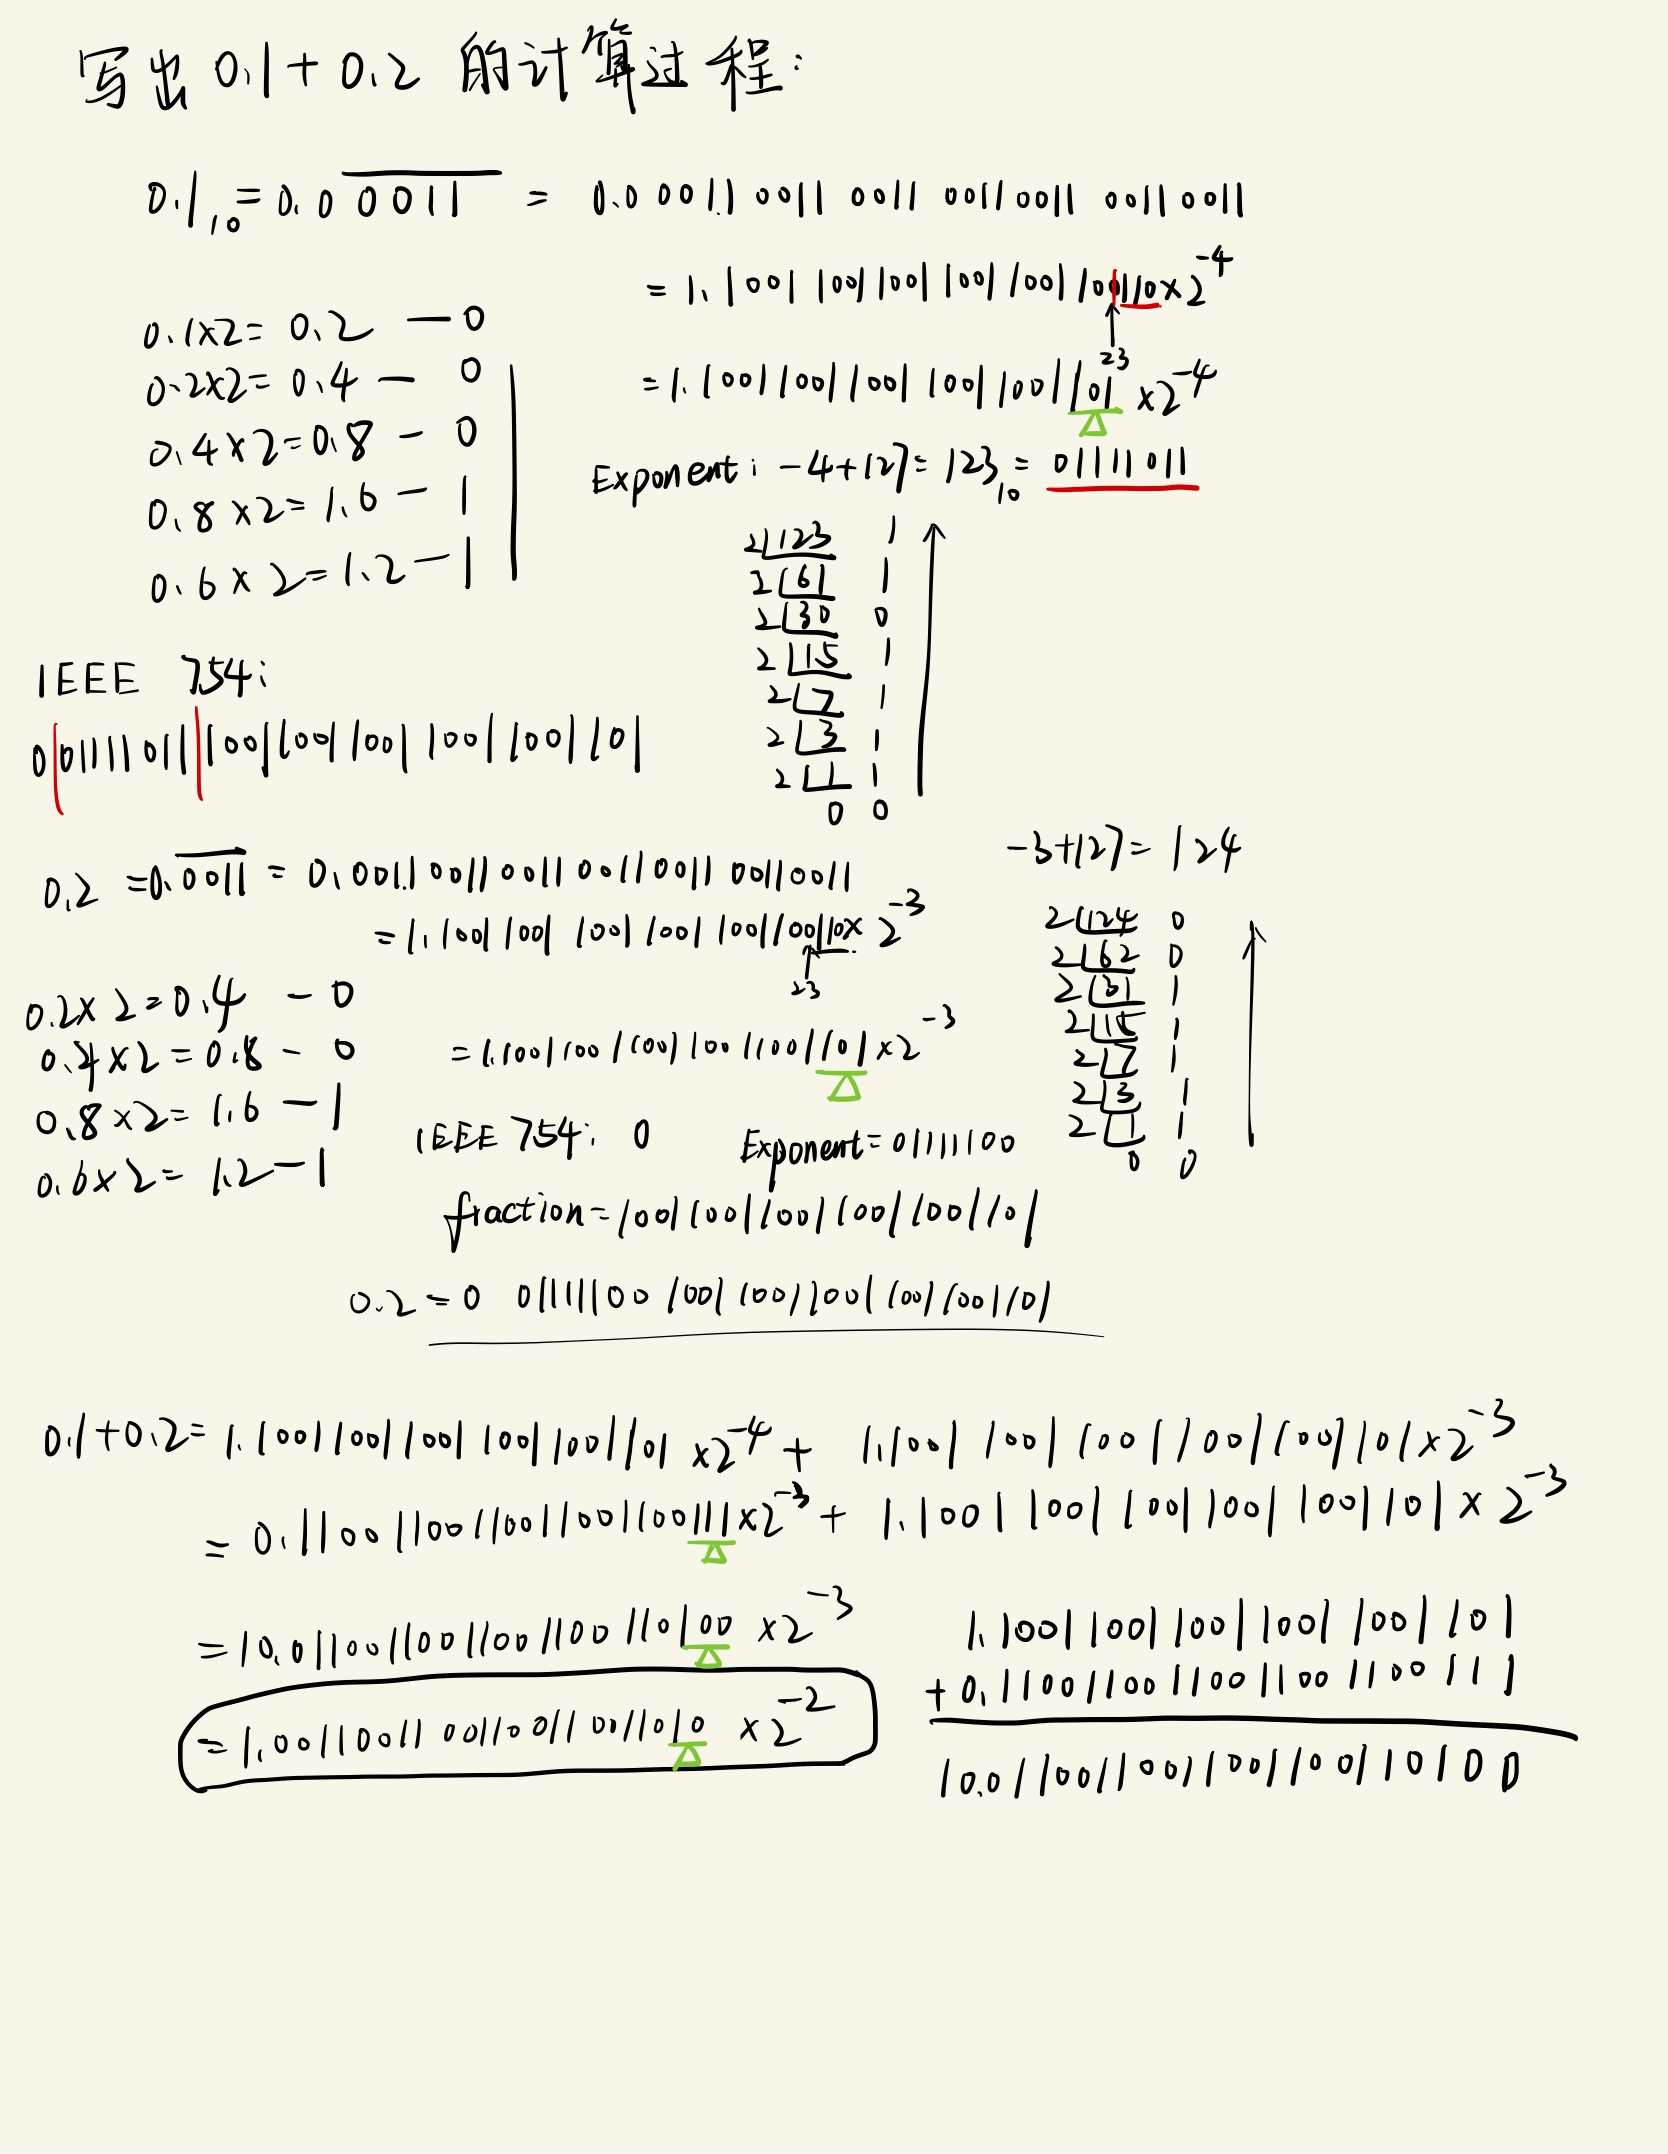 写出 0.1 + 0.2 的计算过程:
0.1₁₀ = 0.0 0011 = 0.0 0011 0011 0011 0011 0011 0011 0011
= 1.1001 1001 1001 1001 1001 100110 × 2⁻⁴
23
= 1.1001 1001 1001 1001 1001 101 × 2⁻⁴
Exponent: -4+127 = 123₁₀ = 01111011
0.1×2 = 0.2 — 0
0.2×2 = 0.4 — 0
0.4×2 = 0.8 — 0
0.8×2 = 1.6 — 1
0.6×2 = 1.2 — 1
2 123 1
2 61 1
2 30 0
2 15 1
2 7 1
2 3 1
2 1 1
0 0
IEEE 754:
0 01111011 1001 1001 1001 1001 1001 101
0.2 = 0.0011 = 0.0011 0011 0011 0011 0011 0011 0011
= 1.1001 1001 1001 1001 1001 100110 × 2⁻³
23
= 1.1001 1001 1001 1001 1001 101 × 2⁻³
0.2×2 = 0.4 — 0
0.4×2 = 0.8 — 0
0.8×2 = 1.6 — 1
0.6×2 = 1.2 — 1
-3+127 = 124
2 124 0
2 62 0
2 31 1
2 15 1
2 7 1
2 3 1
2 1 1
0 0
IEEE 754: 0 Exponent = 01111100
fraction = 1001 1001 1001 1001 1001 101
0.2 = 0 01111100 1001 1001 1001 1001 1001 101
0.1+0.2 = 1.1001 1001 1001 1001 1001 101 × 2⁻⁴ + 1.1001 1001 1001 1001 1001 101 × 2⁻³
= 0.1100 1100 1100 1100 1100 111 × 2⁻³ + 1.1001 1001 1001 1001 1001 101 × 2⁻³
= 10.0110011001100110011010​0 × 2⁻³
= 1.00110011001100110011010 × 2⁻²
1.1001 1001 1001 1001 1001 101
+ 0.1100 1100 1100 1100 1100 111
10.01100110011001100110100